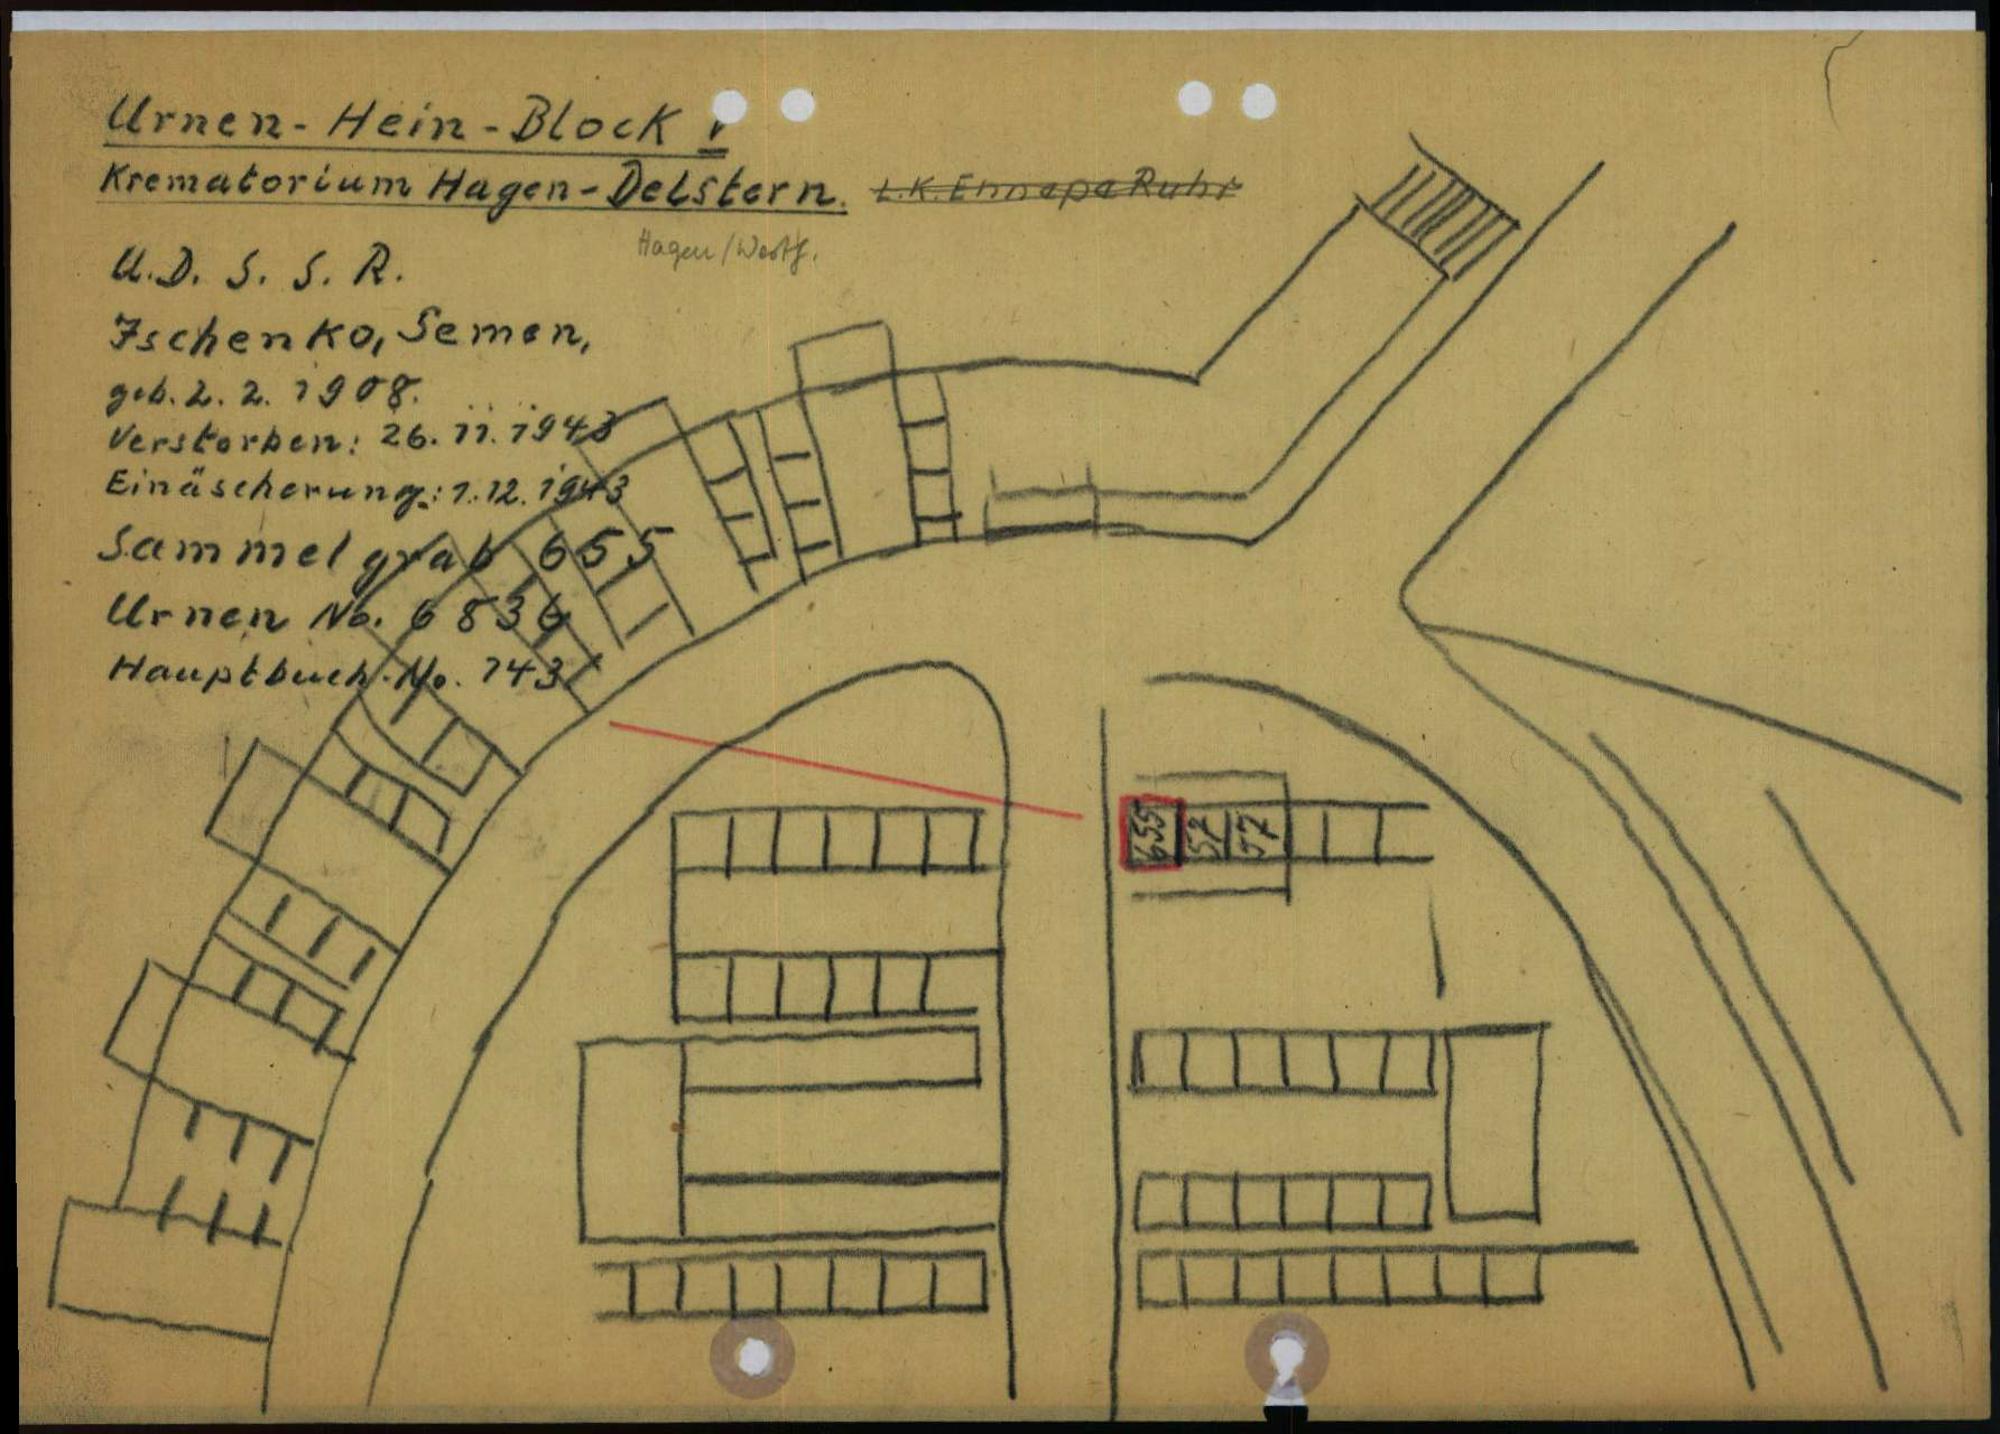 Urnen-Hein-Block I
Krematorium Hagen-Delstern. L.K. Ennepe Ruhr
Hagen/Westf.
U.D.S.S.R.
Ischenko, Semen,
geb. 2. 2. 1908.
Verstorben: 26. 11. 1943
Einäscherung: 1. 12. 1943
Sammelgrab 655
Urnen No. 6836
Hauptbuch-No. 743
655 57 57